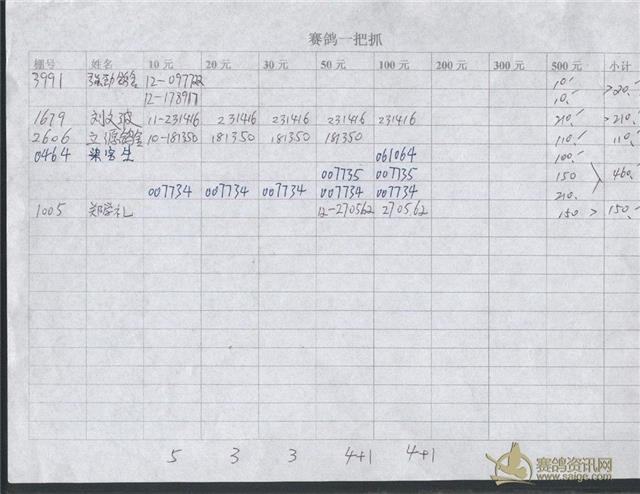 赛鸽一把抓
棚号 姓名 10元 20元 30元 50元 100元 200元 300元 500元 小计
3991 12-0977 10.- >20.-
12-178917 10.-
1679 刘文波 11-231416 231416 231416 231416 231416 210.- >210.-
2606 立源鸽舍 10-181350 181350 181350 181350 110.- 110.-
0464 梁宝生 061064 100.-
007735 007735 150 460.-
007734 007734 007734 007734 007734 210.
1005 郑学礼 12-270562 270562 150 > 150.-
5 3 3 4+1 4+1
赛鸽资讯网
www.saige.com